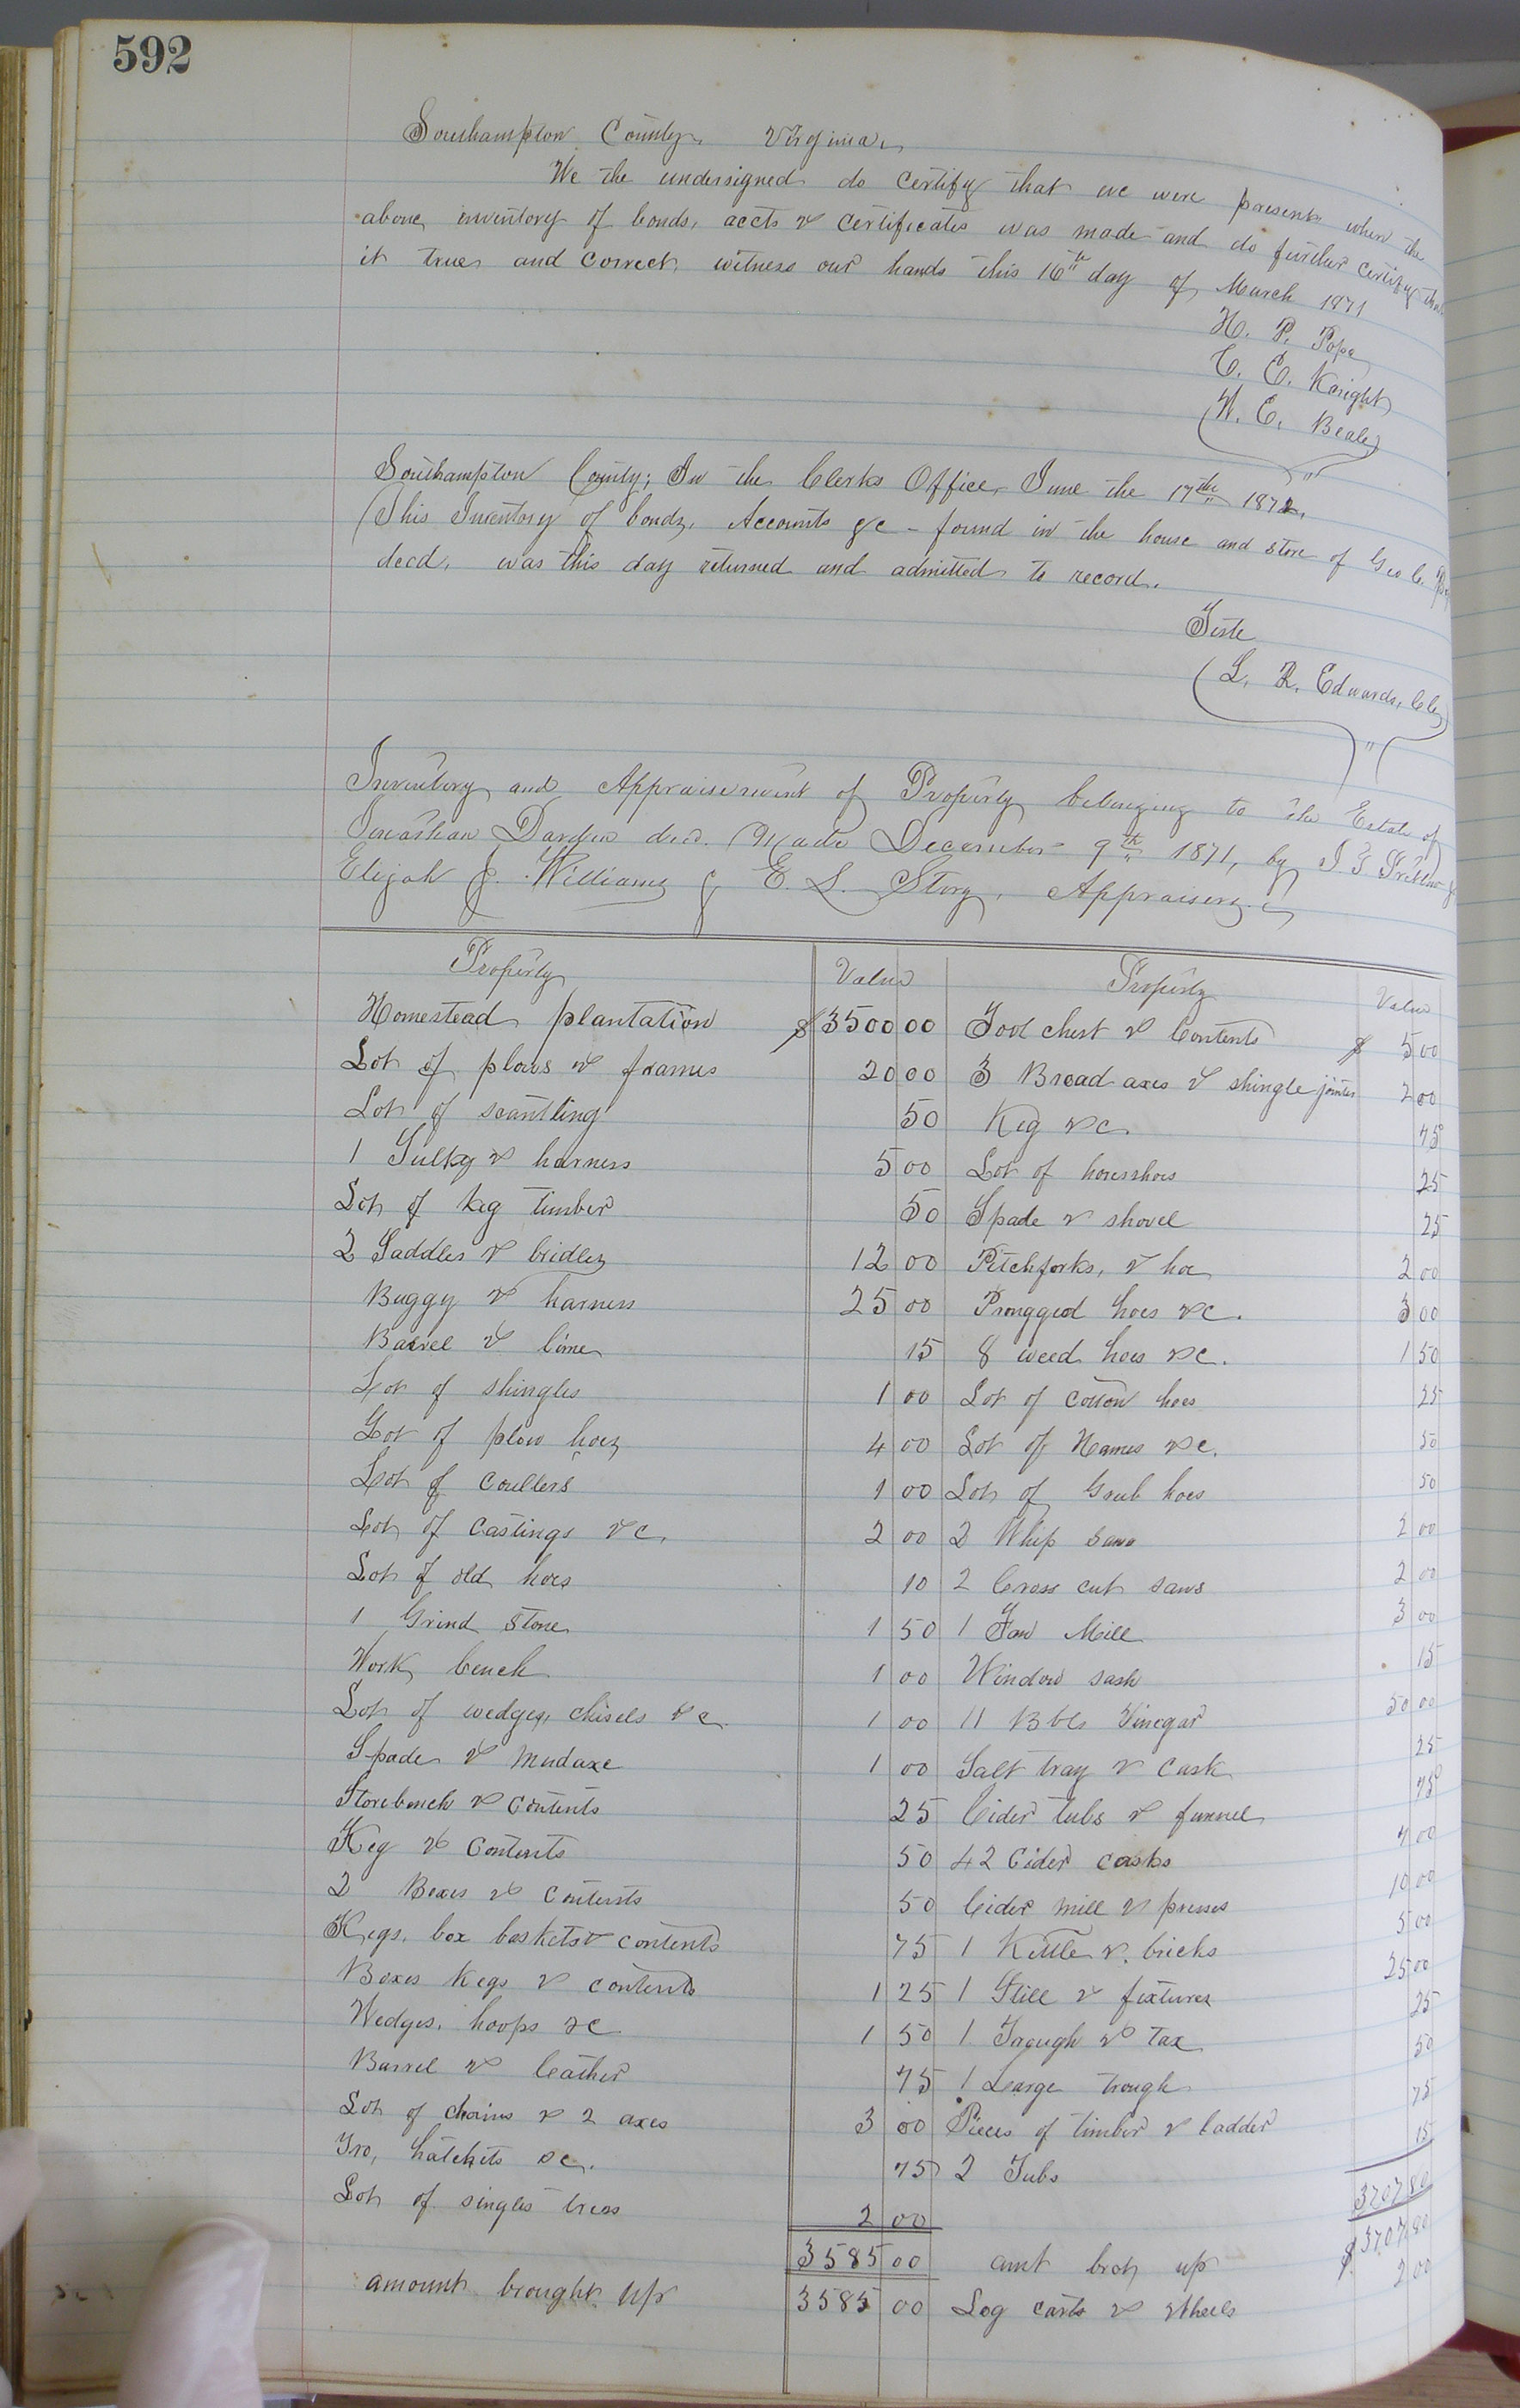 592
Southampton County, Virginia,
We the undersigned do certify that we were present when the
above inventory of bonds, accts & certificates was made and do further certify that
it true and correct, witness our hands this 16th day of March 1871
H. P. Pope
C. C. Knight
W. E. Beale
Southampton County; In the Clerks Office June the 17th 1872,
This Inventory of bonds, Accounts &c - found in the house and store of Geo C.
decd, was this day returned and admitted to record.
Teste
L. R. Edwards, Clk
Inventory and Appraisement of Property belonging to the Estate of
Jonathan Darden decd. Made December 9th 1871, by J. T.
Elijah J. Williams & E. S. Story, Appraisers.
Property Value Property Value
Homestead plantation $3500 00 Tool chest & Contents $ 5 00
Lot of plows & frames 20 00 3 Broad axes & shingle jointer 2 00
Lot of scantling 50 Keg &c. 75
1 Sulky & harness 5 00 Lot of horseshoes 25
Lot of keg timber 50 Spade & shovel 25
2 Saddles & bridles 12 00 Pitchforks, & hoe 2 00
Buggy & harness 25 00 Prongged hoes &c. 3 00
Barrel & lime 15 8 weed hoes &c. 1 50
Lot of shingles 1 00 Lot of cotton hoes 25
Lot of plow hoes 4 00 Lot of Hames &c. 50
Lot of coulters 1 00 Lot of Grub hoes 50
Lot of castings &c. 2 00 2 Whip saws 2 00
Lot of old hoes 10 2 Cross cut saws 2 00
1 Grind stone 1 50 1 Fan Mill 3 00
Work bench 1 00 Window sash 15
Lot of wedges, chisels &c 1 00 11 Bbls Vinegar 50 00
Spade & Mudaxe 1 00 Salt tray & cask 25
Storebench & contents 25 Cider tubs & funnel 75
Keg & contents 50 42 Cider casks 7 00
2 Boxes & contents 50 Cider mill & presses 10 00
Kegs, box baskets & contents 75 1 Kettle & bricks 5 00
Boxes kegs & contents 1 25 1 Still & fixtures 25 00
Wedges, hoops &c 1 50 1 Trough & Tax 25
Barrel & leather 75 1 Large trough 50
Lot of chains & 2 axes 3 00 Pieces of timber & ladder 75
Fro, hatchets &c. 75 2 Tubs 15
Lot of singles trees 2 00 3707 80
3585 00 amt brot up $3707 80
amount brought up 3585 00 Log carts & wheels 2 00